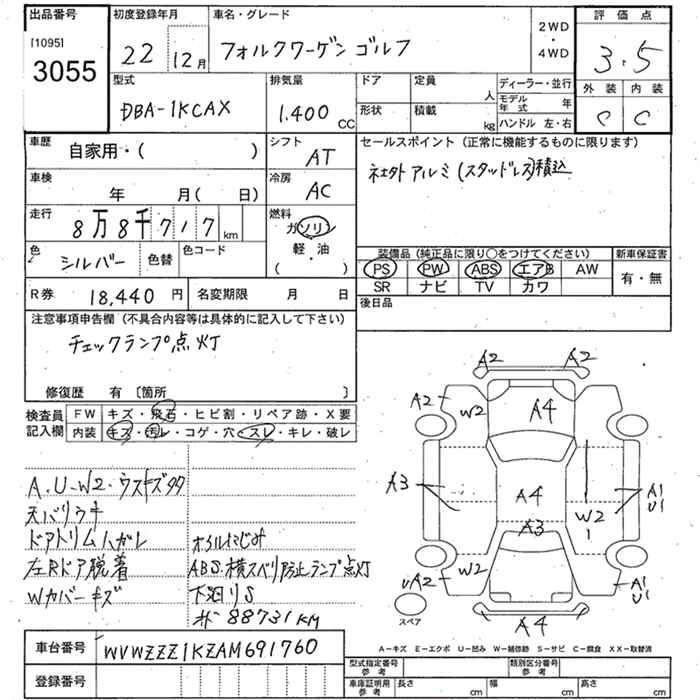 出品番号
[1095]
3055
初度登録年月
22 12月
車名・グレード
フォルクワーゲン ゴルフ
2WD
・
4WD
評価点
3.5
外装 内装
C C
型式
DBA-1KCAX
排気量
1.400 cc
ドア
定員
人
形状
積載
kg
ディーラー・並行
モデル年式 年
ハンドル 左・右
車歴
自家用・( )
シフト
AT
車検
年 月( 日)
冷房
AC
セールスポイント(正常に機能するものに限ります)
社外アルミ(スタッドレス)積込
走行
8万8千717km
燃料
ガソリン
軽・油
( )
色
シルバー
色替
色コード
装備品(純正品に限り○をつけてください)
新車保証書
PS PW ABS エアB AW
SR ナビ TV カワ
有・無
R券
18,440円
名変期限 月 日
後日品
注意事項申告欄(不具合内容等は具体的に記入して下さい)
チェックランプ点灯
修復歴 有〔箇所 〕
検査員
記入欄
FW キズ・飛石・ヒビ割・リペア跡・X要
内装 キズ・汚レ・コゲ・穴・スレ・キレ・破レ
A.U-W2.ウスキズ多
天バリウキ
ドアトリムハガレ
左Rドア脱着
Wカバーキズ
オイルにじみ
ABS.横スベリ防止ランプ点灯
下廻りS
88731KM
A2 A2
A2 W2 A4
A3 A4 A1
U1
A3 W2
1
UA2 W2 A1
U1
A4
スペア
車台番号
WVWZZZ1KZAM691760
登録番号
A-キズ E-エクボ U-凹み W-補修跡 S-サビ C-腐食 XX-取替済
型式指定番号
参考
類別区分番号
参考
車庫証明用
参考
長さ cm
幅 cm
高さ cm